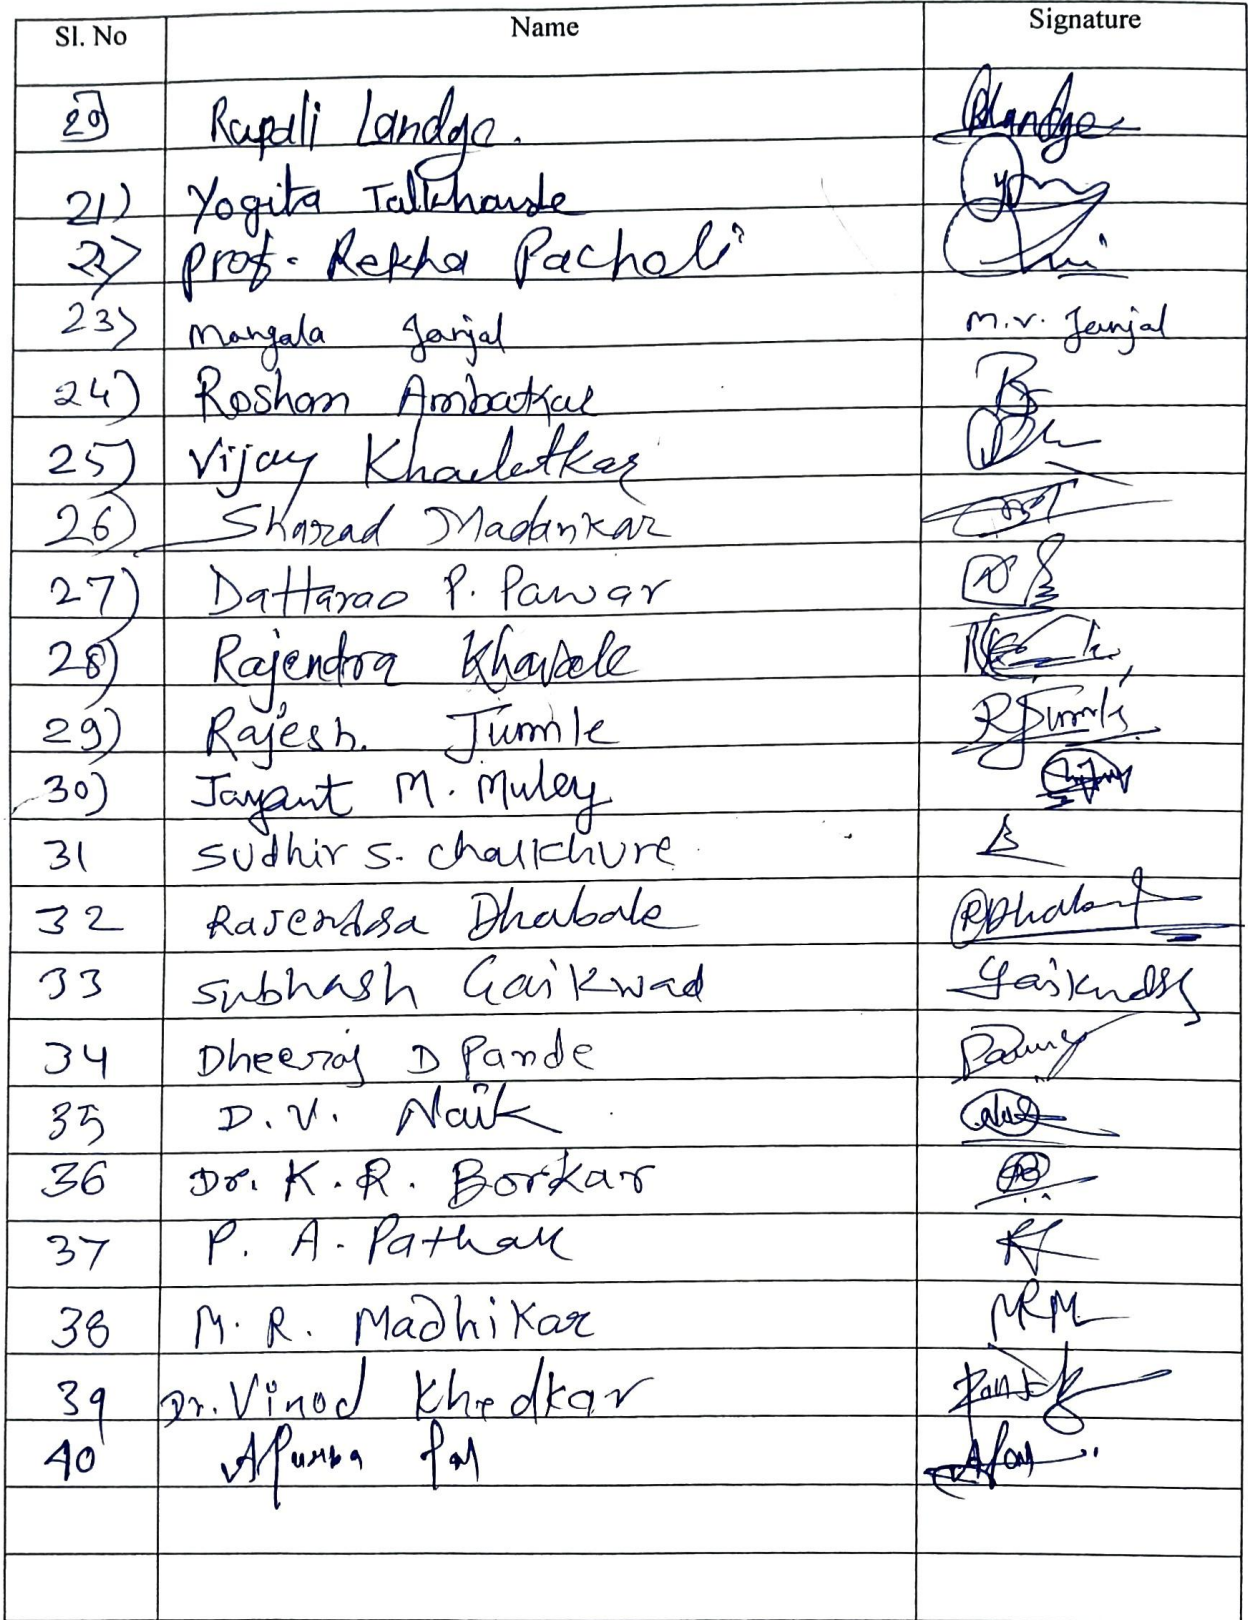 Sl. No Name Signature
20) Rupali Landge. RLandge
21) Yogita Talkhande
22) Prof. Rekha Pacholi
23) Mangala Janjal M.V. Janjal
24) Roshan Ambatkar
25) Vijay
26) Sharad Madankar
27) Dattarao P. Pawar
28) Rajendra
29) Rajesh. Jumle RJumle
30) Jayant M. Muley
31 Sudhir S. Chaukhure
32 Rajendra Dhabale
33 Subhash Gaikwad
34 Dheeraj D Pande
35 D.V. Naik
36 Dr. K.R. Borkar
37 P. A. Pathak
38 M. R. Madhikar MRM
39 Dr. Vinod Khedkar
40 Apurba Pal APal